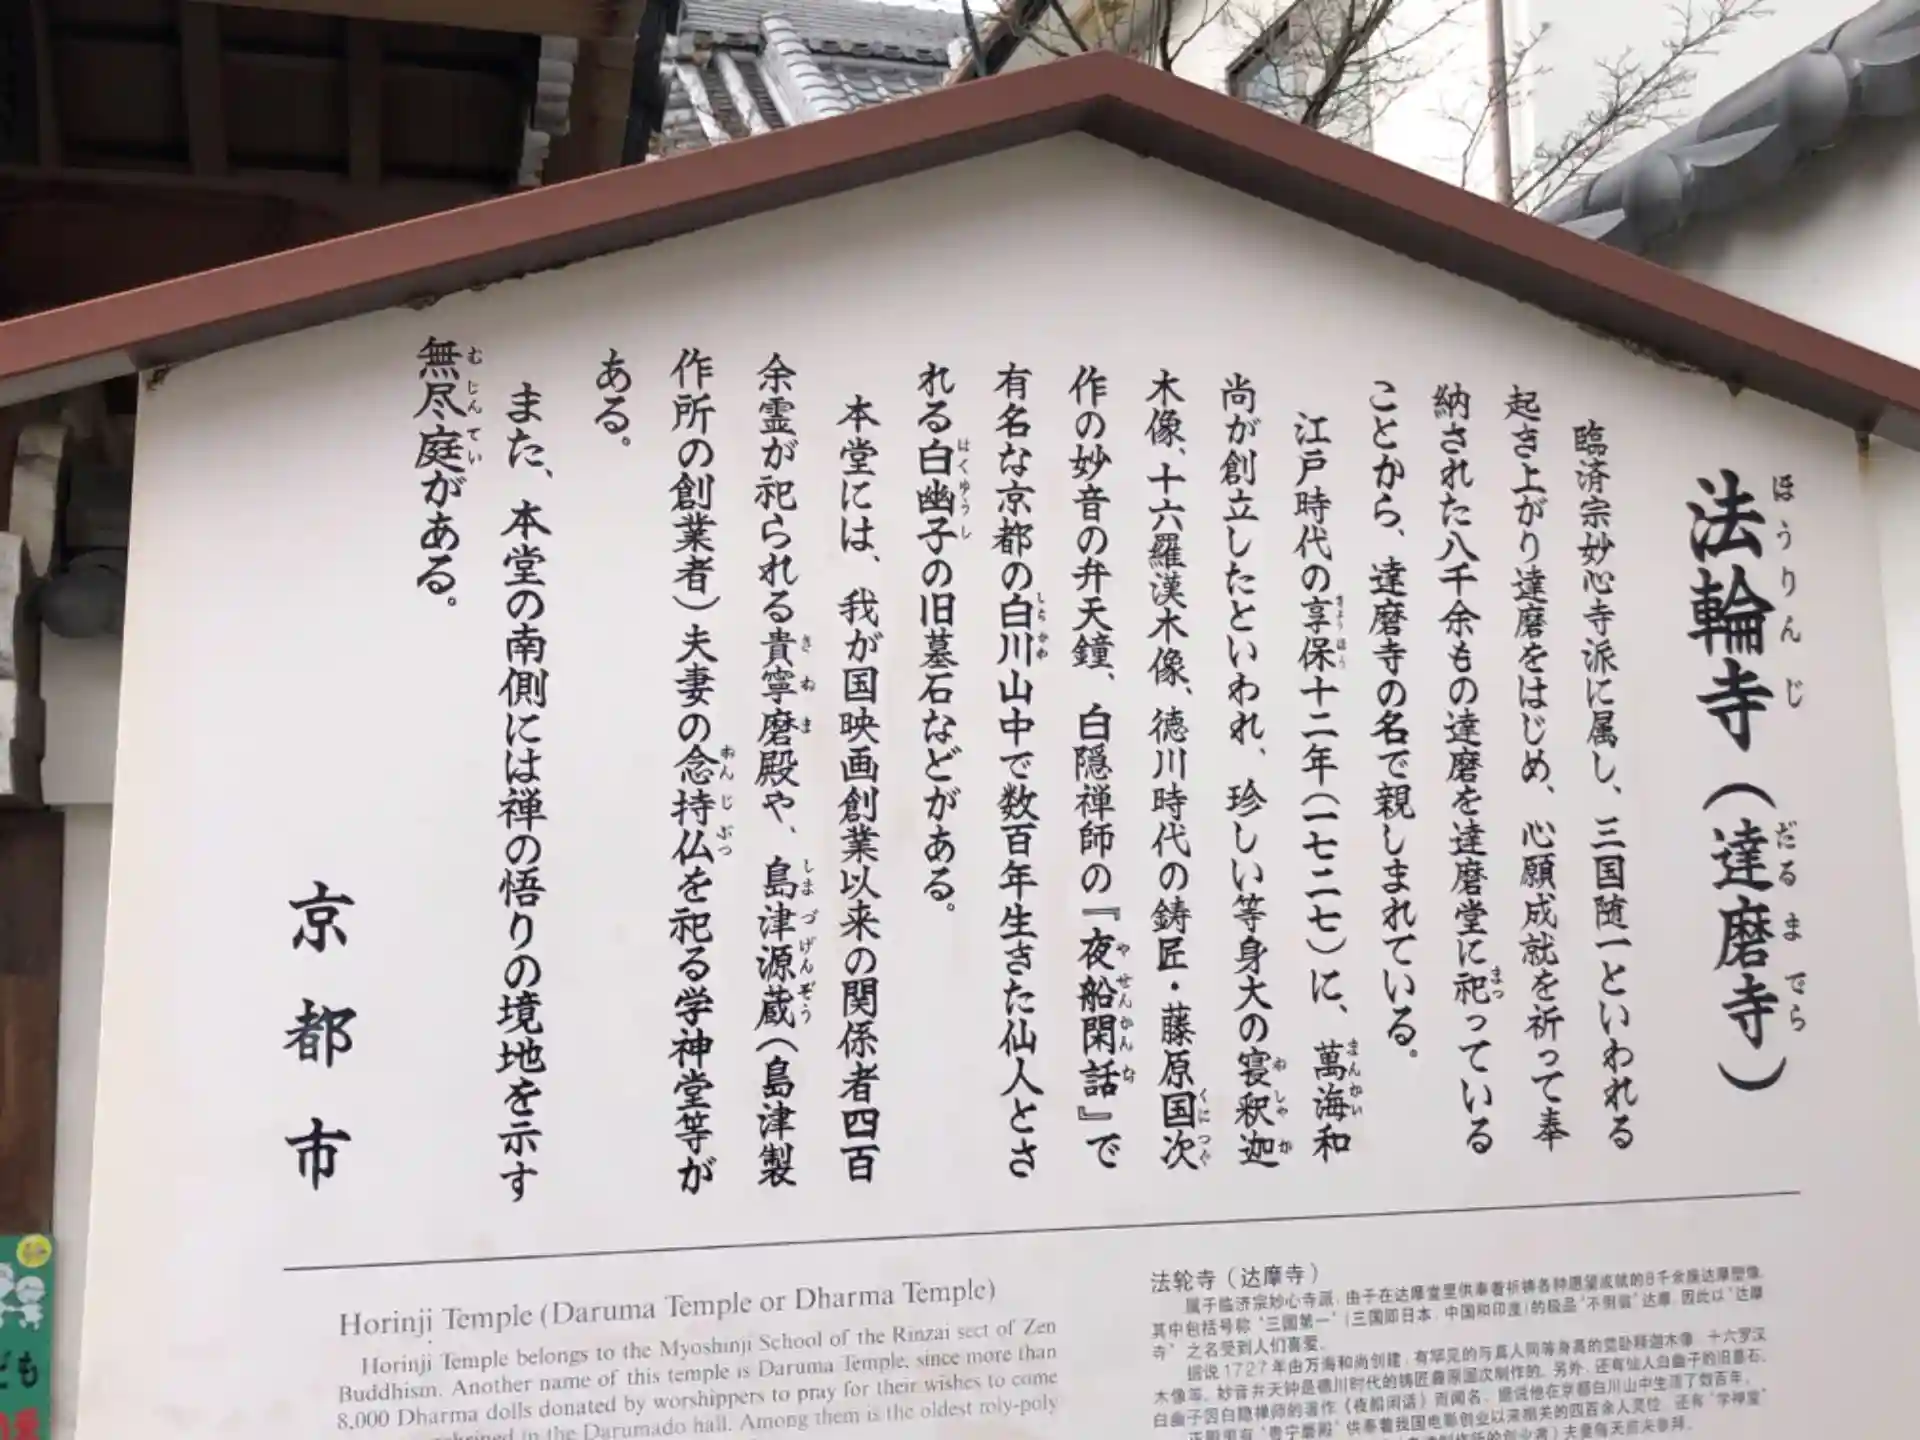 法輪寺（達磨寺）
ほうりんじ だるまでら
臨済宗妙心寺派に属し、三国随一といわれる
起き上がり達磨をはじめ、心願成就を祈って奉
納された八千余もの達磨を達磨堂に祀っている
まつ
ことから、達磨寺の名で親しまれている。
江戸時代の享保十二年（一七二七）に、萬海和
きょうほう まんかい
尚が創立したといわれ、珍しい等身大の寝釈迦
ねしゃか
木像、十六羅漢木像、徳川時代の鋳匠・藤原国次
くにつぐ
作の妙音の弁天鐘、白隠禅師の『夜船閑話』で
やせんかんな
有名な京都の白川山中で数百年生きた仙人とさ
しらかわ
れる白幽子の旧墓石などがある。
はくゆうし
本堂には、我が国映画創業以来の関係者四百
余霊が祀られる貴寧磨殿や、島津源蔵（島津製
きねま しまづげんぞう
作所の創業者）夫妻の念持仏を祀る学神堂等が
ねんじぶつ
ある。
また、本堂の南側には禅の悟りの境地を示す
無尽庭がある。
むじんてい
京都市
Horinji Temple (Daruma Temple or Dharma Temple)
Horinji Temple belongs to the Myoshinji School of the Rinzai sect of Zen
Buddhism. Another name of this temple is Daruma Temple, since more than
8,000 Dharma dolls donated by worshippers to pray for their wishes to come
in the Darumado hall. Among them is the oldest roly-poly
法轮寺（达摩寺）
属于临济宗妙心寺派，由于在达摩堂里供奉着祈祷各种愿望成就的8千余座达摩塑像，
其中包括号称“三國第一”（三国即日本、中国和印度）的极品“不倒翁”达摩，因此以“达摩
寺”之名受到人们喜爱。
据说1727年由万海和尚创建，有罕见的与真人同等身高的觉卧释迦木像、十六罗汉
木像等，妙音弁天钟是德川时代的铸匠藤原国次制作的。另外，还有仙人白幽子的旧墓石，
白幽子因白隐禅师的著作《夜船闲话》而闻名，据说他在京都白川山中生活了数百年。
正殿里有“贵宁磨殿”供奉着我国电影创业以来相关的四百余人灵位，还有“学神堂”
ども